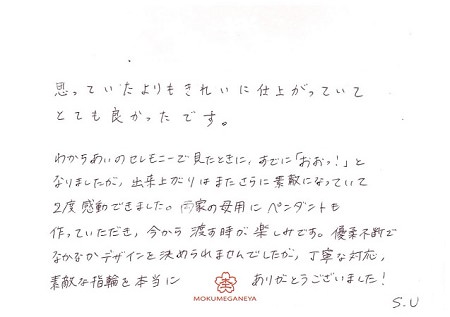 思っていたよりもきれいに仕上がっていて
とても良かったです。
わからあいのセレモニーで見たときに、すでに「おおっ!」と
なりましたが、出来上がりはまたさらに素敵になっていて
2度感動できました。両家の母用にペンダントも
作っていただき、今から渡す時が楽しみです。優柔不断で
なかなかデザインを決められませんでしたが、丁寧な対応、
素敵な指輪を本当に ありがとうございました!
MOKUMEGANEYA
S.U